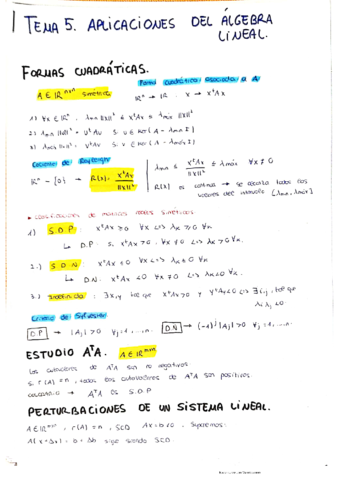 TEMA 5. APLICACIONES DEL ÁLGEBRA
LINEAL.
FORMAS CUADRÁTICAS.
Forma cuadrática asociada a A
A ∈ ℝⁿˣⁿ simétrica
ℝⁿ → ℝ x → xᵗAx
1) ∀x ∈ ℝⁿ, λmin ||x||² ≤ xᵗAx ≤ λmáx ||x||²
2) λmin ||v||² = vᵗAv si v ∈ Ker(A - λmin I)
3) λmáx ||v||² = vᵗAv si v ∈ Ker(A - λmáx I)
Cociente de Rayleigh
ℝⁿ - {0} → R(x) = xᵗAx / ||x||²
λmin ≤ xᵗAx / ||x||² ≤ λmáx ∀x ≠ 0
R(x) es continua → se alcanza todos los
valores del intervalo [λmin, λmáx]
Clasificación de matrices reales simétricas:
1) S.D.P: xᵗAx ≥ 0 ∀x <=> λk ≥ 0 ∀k
↳ D.P: si xᵗAx > 0 ∀x ≠ 0 <=> λk > 0 ∀k
2.) S.D.N: xᵗAx ≤ 0 ∀x <=> λk ≤ 0 ∀k
↳ D.N: xᵗAx < 0 ∀x ≠ 0 <=> λk < 0 ∀k
3.) Indefinida: ∃x,y tal que xᵗAx > 0 y yᵗAy < 0 <=> ∃i,j tal que
λiλj < 0
Criterio de Sylvester
D.P → |Aj| > 0 ∀j = 1, ..., n.
D.N → (-1)ʲ |Aj| > 0 ∀j = 1, ..., n.
ESTUDIO AᵗA. A ∈ ℝⁿˣᵐ
Los autovalores de AᵗA son no negativos
si r(A) = n, todos los autovalores de AᵗA son positivos
→ AᵗA es S.D.P
PERTURBACIONES DE UN SISTEMA LINEAL.
A ∈ ℝⁿˣⁿ, r(A) = n, SCD Ax = b ≠ 0. Siparemos:
A(x + Δx) = b + Δb sigue siendo SCD